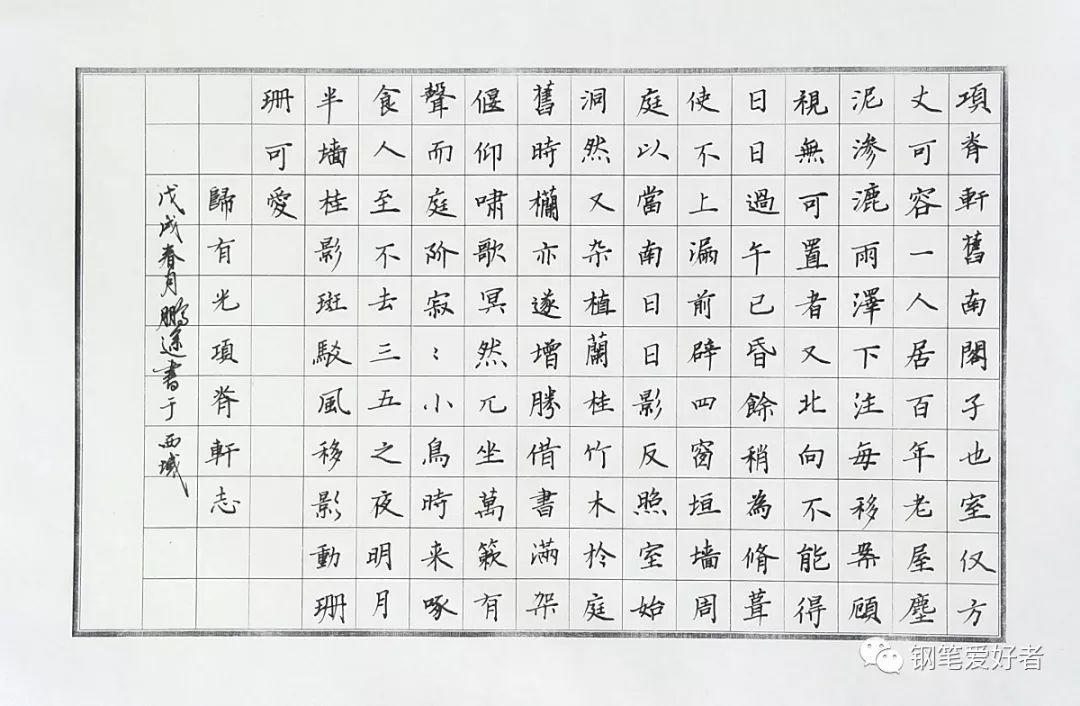 項脊軒舊南閣子也室仅方
丈可容一人居百年老屋塵
泥渗漉雨澤下注每移案顧
視無可置者又北向不能得
日日過午已昏餘稍為脩葺
使不上漏前辟四窗垣墙周
庭以當南日日影反照室始
洞然又杂植蘭桂竹木於庭
舊時欄亦遂增勝借書满架
偃仰啸歌冥然兀坐萬籁有
聲而庭阶寂〻小鳥時来啄
食人至不去三五之夜明月
半墙桂影斑駁風移影動珊
珊可愛
歸有光項脊軒志
戊戌春月鹏書于西域
钢笔爱好者